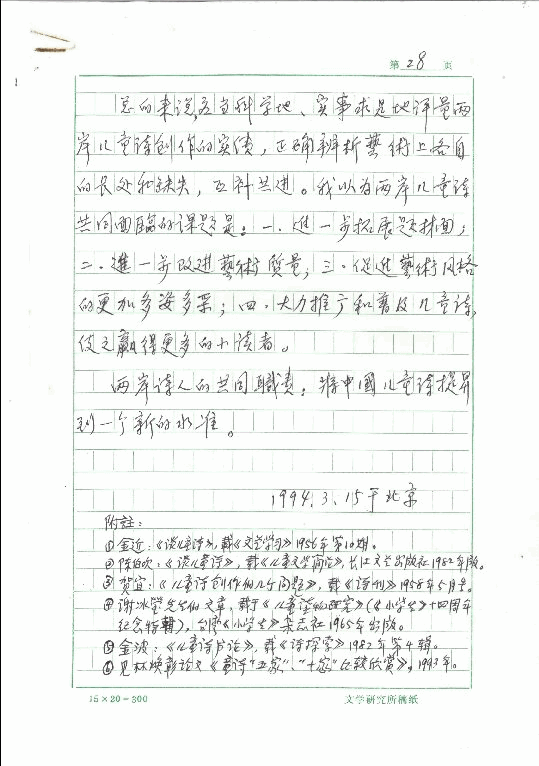 第 28 页
总的来说，应当科学地、实事求是地评量两
岸儿童诗创作的实绩，正确辨析藝術上各自
的长处和缺失，互补共进。我以为两岸儿童诗
共同面臨的课题是：一．進一步拓展题材面；
二．進一步改进藝術质量；三．促进藝術风格
的更加多姿多采；四．大力推广和普及儿童诗，
使之赢得更多的小读者。
两岸诗人的共同職责：将中國儿童诗提昇
到一个新的水准。
1994.3.15于北京
附註：
①金近：《谈儿童诗》，载《文艺学习》1956年第10期。
②陈伯吹：《谈儿童诗》，载《儿童文学简论》，长江文艺出版社1982年版。
③贺宜：《儿童诗创作的几个问题》，载《诗刊》1958年5月号。
④谢冰瑩先生的文章，载于《儿童读物研究》（《小学生》十四周年
纪念特輯），台灣《小学生》杂志社1965年出版。
⑤金波：《儿童诗片论》，载《诗探学》1982年第4辑。
⑥见林焕彰论文《童诗“五家”、“十家”比较欣赏》，1993年。
15×20=300
文学研究所稿纸